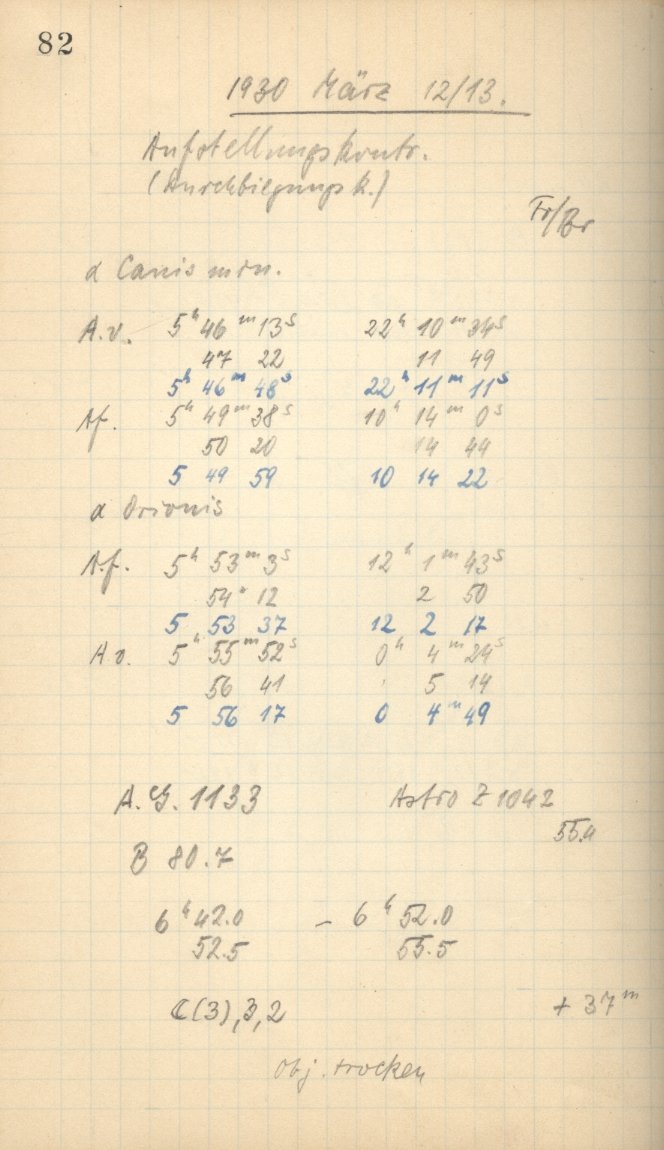 82
1930 März 12/13.
Aufstellungskontr.
(Durchbiegungsk.)
Fr/Br
α Canis min.
A.v. 5ʰ 46ᵐ 13ˢ 22ʰ 10ᵐ 34ˢ
47 22 11 49
5ʰ 46ᵐ 48ˢ 22ʰ 11ᵐ 11ˢ
Af. 5ʰ 49ᵐ 38ˢ 10ʰ 14ᵐ 0ˢ
50 20 14 44
5 49 59 10 14 22
α Orionis
A.f. 5ʰ 53ᵐ 3ˢ 12ʰ 1ᵐ 43ˢ
54 12 2 50
5 53 37 12 2 17
A v. 5ʰ 55ᵐ 52ˢ 0ʰ 4ᵐ 24ˢ
56 41 5 14
5 56 17 0 4ᵐ 49
A.G. 1133 Astro Z 1042
55.4
B 80.7
6ʰ 42.0 – 6ʰ 52.0
52.5 55.5
C(3),3,2 + 37ᵐ
Obj. trocken